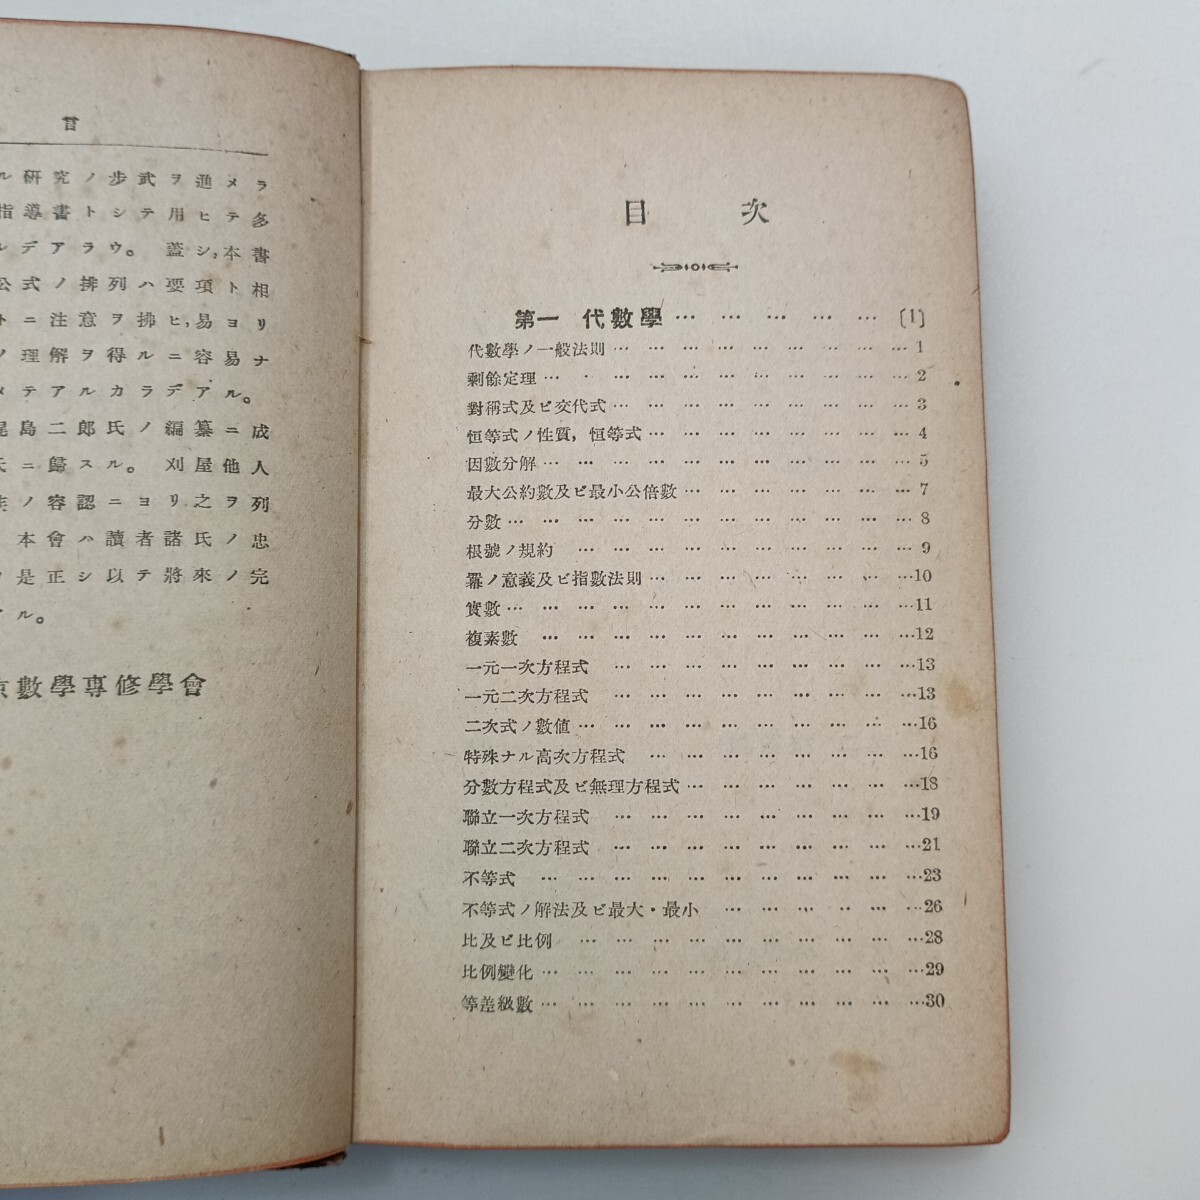 言
ル研究ノ步武ヲ進メラ
指導書トシテ用ヒテ多
ルデアラウ。 蓋シ,本書
公式ノ排列ハ要項ト相
トニ注意ヲ拂ヒ,易ヨリ
ノ理解ヲ得ルニ容易ナ
メテアルカラデアル。
尾島二郎氏ノ編纂ニ成
氏ニ歸スル。 刈屋他人
ノ容認ニヨリ之ヲ列
本會ハ讀者諸氏ノ忠
是正シ以テ將來ノ完
ル。
京數學專修學會
目 次
第一 代數學 … … … … … [1]
代數學ノ一般法則 … … … … … … … … … 1
剩餘定理 … … … … … … … … … … 2
對稱式及ビ交代式 … … … … … … … … … 3
恒等式ノ性質, 恒等式 … … … … … … … … 4
因數分解 … … … … … … … … … … … 5
最大公約數及ビ最小公倍數 … … … … … … … 7
分數 … … … … … … … … … … … … 8
根號ノ規約 … … … … … … … … … … 9
冪ノ意義及ビ指數法則 … … … … … … … … 10
實數 … … … … … … … … … … … … 11
複素數 … … … … … … … … … … … 12
一元一次方程式 … … … … … … … … … 13
一元二次方程式 … … … … … … … … … 13
二次式ノ數値 … … … … … … … … … … 16
特殊ナル高次方程式 … … … … … … … … 16
分數方程式及ビ無理方程式 … … … … … … … 18
聯立一次方程式 … … … … … … … … … 19
聯立二次方程式 … … … … … … … … … 21
不等式 … … … … … … … … … … … 23
不等式ノ解法及ビ最大・最小 … … … … … … 26
比及ビ比例 … … … … … … … … … … 28
比例變化 … … … … … … … … … … … 29
等差級數 … … … … … … … … … … … 30